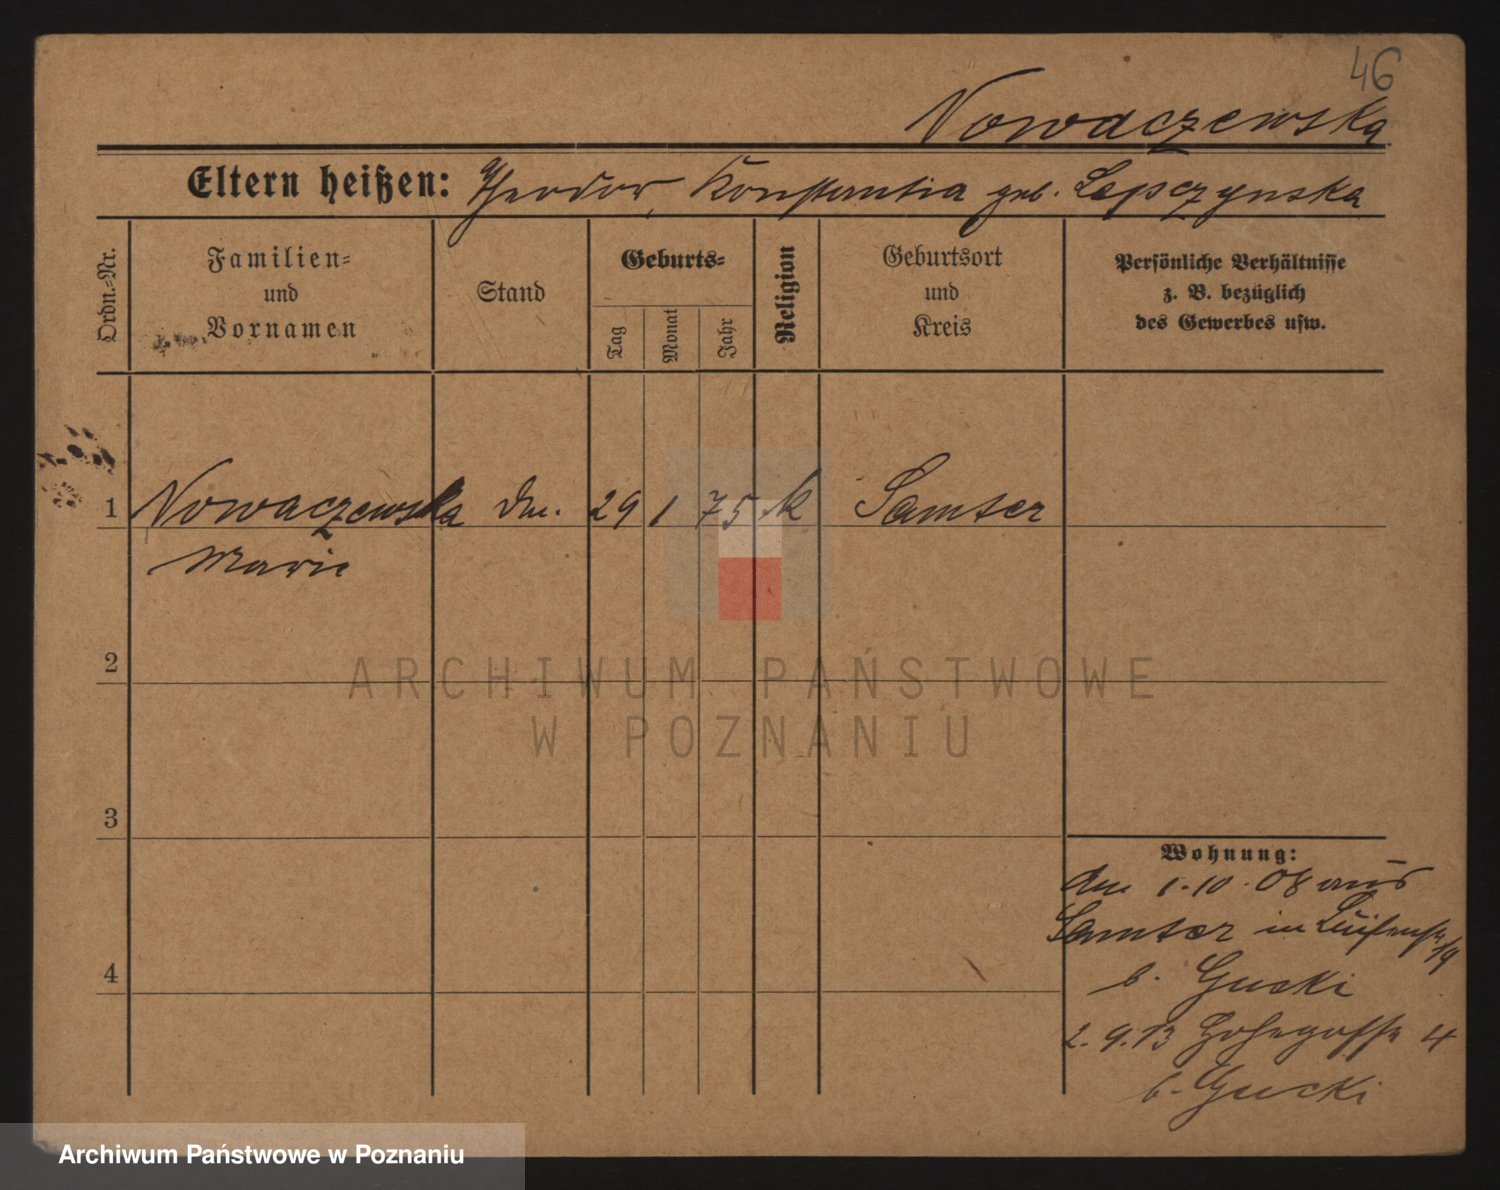 46
Nowaczewska
Eltern heißen: Theodor, Konstantia geb. Lepczynska
Ordn.-Nr.
Familien-
und
Vornamen
Stand
Geburts-
Tag
Monat
Jahr
Religion
Geburtsort
und
Kreis
Persönliche Verhältnisse
z. B. bezüglich
des Gewerbes usw.
1 Nowaczewska 29 1 75 k Samter
Marie
2
3
4
Wohnung:
den 1.10.08 aus
Samter in Luisenstr 19
b. Gucki
2.9.13 Hohegasse 4
b. Gucki
ARCHIWUM PAŃSTWOWE
W POZNANIU
Archiwum Państwowe w Poznaniu